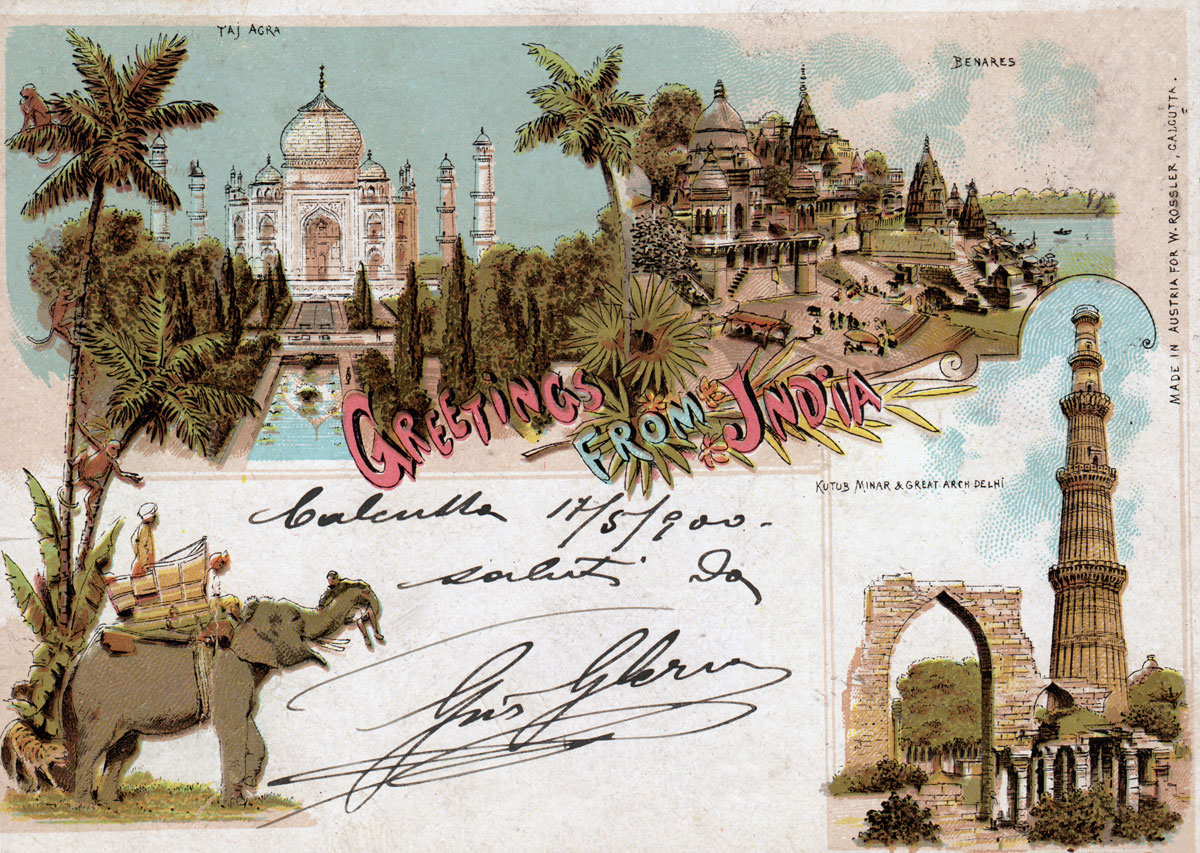 TAJ AGRA
BENARES
MADE IN AUSTRIA FOR W. ROSSLER, CALCUTTA.
GREETINGS
FROM INDIA
KUTUB MINAR & GREAT ARCH DELHI
Calcutta 17/5/900-
saluti da